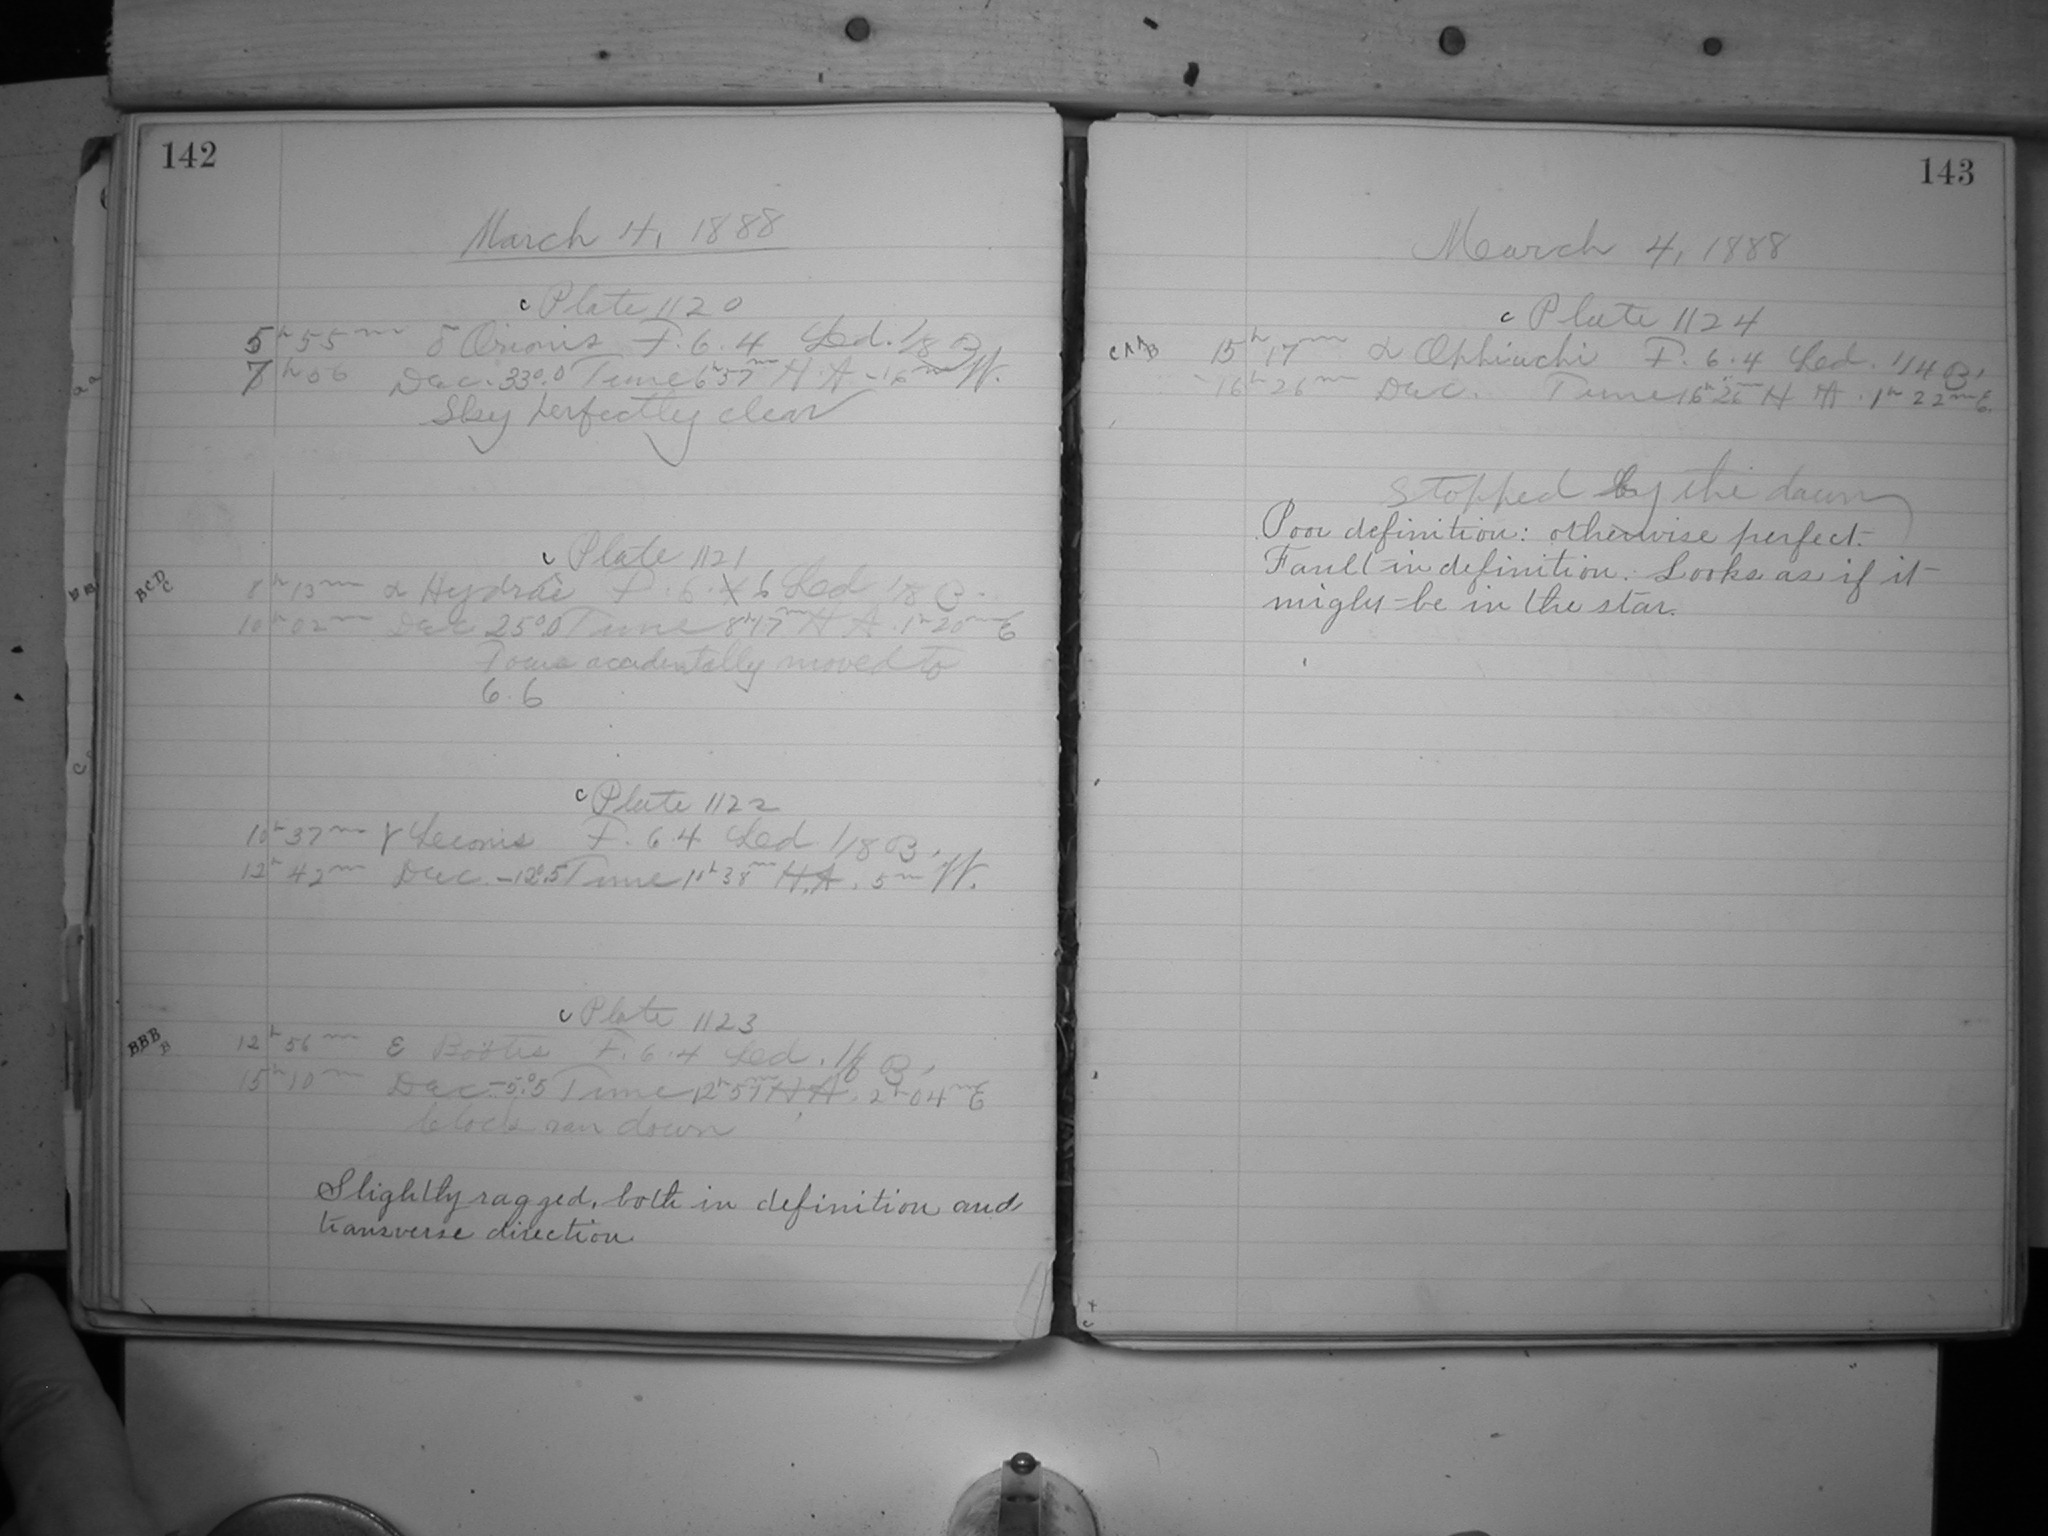 142
March 4, 1888
c Plate 1120
5h 55m δ Orionis F. 6.4 Led. 1/8 B.
7h 06 Dec. 33°.0 Time 6h57m H.A. -16m W.
Sky perfectly clear
c Plate 1121
BCDC 8h 13m α Hydrae F. 6.4 6 Led 1/8 B.
10h 02m Dec 25°.0 Time 8h17m H A. 1h 20m E
Focus accidentally moved to
6.6
c Plate 1122
10h 37m γ Leonis F. 6.4 Led 1/8 B.
12h 42m Dec. -12°.5 Time 11h 38m H.A. 5m W.
c Plate 1123
BBBB 12h 56m ε Boötis F. 6.4 Led. 1/8 B.
15h 10m Dec. -5°.5 Time 12h 57m H A. 2h 04m E
Clock ran down
Slightly ragged, both in definition and
transverse direction
143
March 4, 1888
c Plate 1124
CAAB 15h 17m α Ophiuchi F. 6.4 Led. 1/4 B.
16h 26m Dec. Time 16h 26m H A. 1h 22m E.
Stopped by the dawn
Poor definition: otherwise perfect.
Fault in definition. Looks as if it
might be in the star.